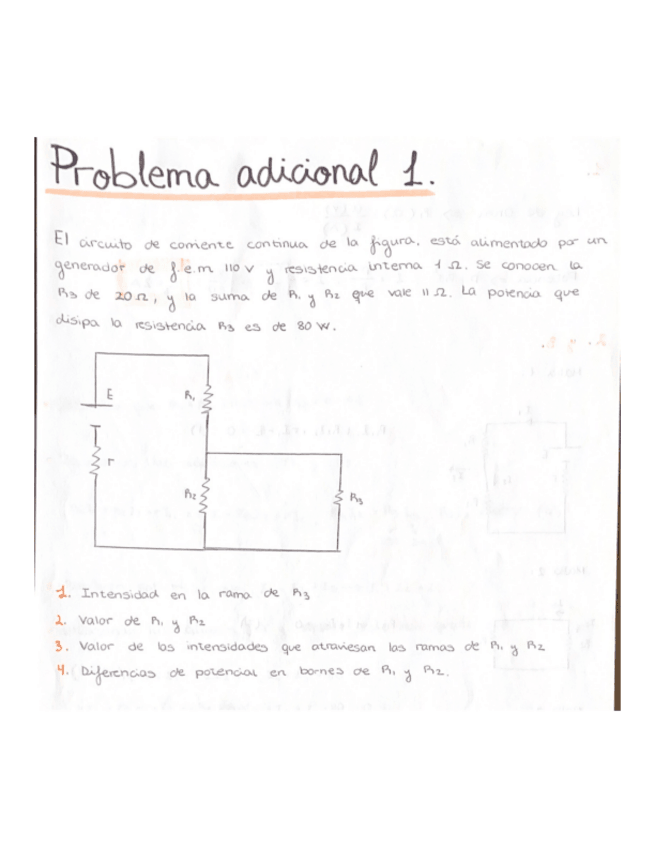 Problema adicional 1.
El circuito de corriente continua de la figura, está alimentado por un
generador de f.e.m. 110 V y resistencia interna 1 Ω. Se conocen la
R3 de 20 Ω, y la suma de R1 y R2 que vale 11 Ω. La potencia que
disipa la resistencia R3 es de 80 W.
E
R1
r
R2
R3
1. Intensidad en la rama de R3
2. Valor de R1 y R2
3. Valor de las intensidades que atraviesan las ramas de R1 y R2
4. Diferencias de potencial en bornes de R1 y R2.